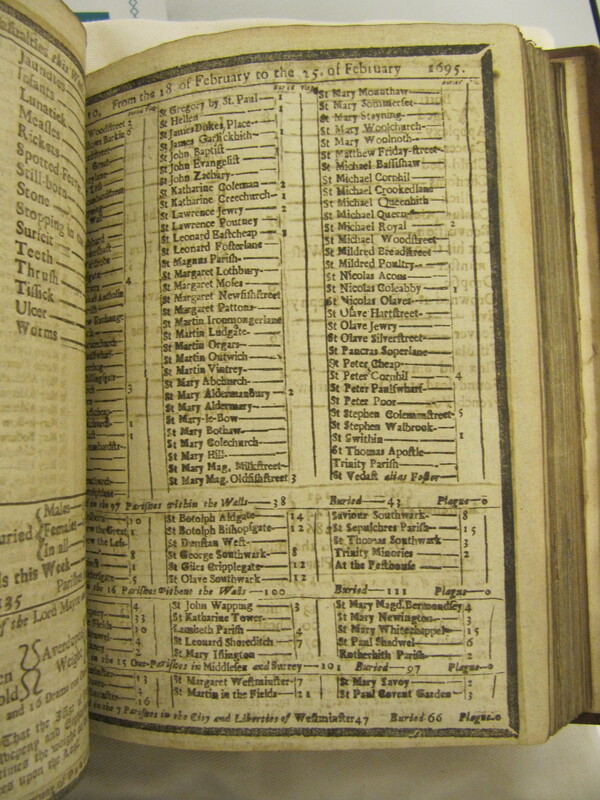 Casualties this
Jaundies
Infants
Lunatick
Measles
Rickets
Spotted
Still-born
Stone
Stopping in
Surfeit
Teeth
Thrush
Tissick
Ulcer
Worms
Males
Females
in all
this Week
35
of the Lord Mayor
Averdupois
Weight
From the 18 of February to the 25. of February 1695.
St Gregory by St. Paul 1
St Hellen
St James Dukes Place 1
St James Garlickhith
St John Baptist
St John Evangelist
St John Zachary
St Katharine Coleman 2
St Katharine Creechurch 1
St Lawrence Jewry 2
St Lawrence Pountney
St Leonard Eastcheap
St Leonard Fosterlane
St Magnus Parish
St Margaret Lothbury
St Margaret Moses
St Margaret Newfishstreet
St Margaret Pattons
St Martin Ironmongerlane
St Martin Ludgate
St Martin Orgars
St Martin Outwich
St Martin Vintrey
St Mary Abchurch
St Mary Aldermanbury 2
St Mary Aldermary
St Mary-le-Bow
St Mary Bothaw
St Mary Colechurch
St Mary Hill
St Mary Mag. Milkstreet
St Mary Mag. Oldfishstreet 3
St Mary Mounthaw
St Mary Sommerset
St Mary Stayning
St Mary Woolchurch
St Mary Woolnoth
St Matthew Friday-street
St Michael Bassishaw
St Michael Cornhil
St Michael Crookedlane
St Michael Queenhith
St Michael Quern
St Michael Royal 2
St Michael Woodstreet
St Mildred Breadstreet
St Mildred Poultry
St Nicolas Acons
St Nicolas Coleabby 1
St Nicolas Olaves
St Olave Hartstreet
St Olave Jewry
St Olave Silverstreet
St Pancras Soperlane
St Peter Cheap
St Peter Cornhil 4
St Peter Paulswharf
St Peter Poor
St Stephen Colemanstreet 5
St Stephen Walbrook
St Swithin 1
St Thomas Apostle
Trinity Parish
St Vedast alias Foster
in the 97 Parishes within the Walls 38 Buried 43 Plague 0
St Botolph Aldgate 14
St Botolph Bishopsgate 12
St Dunstan West
St George Southwark 8
St Giles Cripplegate 12
St Olave Southwark 12
Saviour Southwark 8
St Sepulchres Parish 15
St Thomas Southwark 3
Trinity Minories 2
At the Pesthouse
the 16 Parishes without the Walls 100 Buried 111 Plague 0
St John Wapping 3
St Katharine Tower
Lambeth Parish 4
St Leonard Shoreditch 7
St Mary Islington
St Mary Magd. Bermondsey 4
St Mary Newington 3
St Mary Whitechappel 15
St Paul Shadwel 6
Rotherhith Parish 2
in the 15 Out-Parishes in Middlesex and Surrey 101 Buried 97 Plague 0
St Margaret Westminster 7
St Martin in the Fields 21
St Mary Savoy 2
St Paul Covent Garden 3
in the 7 Parishes in the City and Liberties of Westminster 47 Buried 66 Plague 0